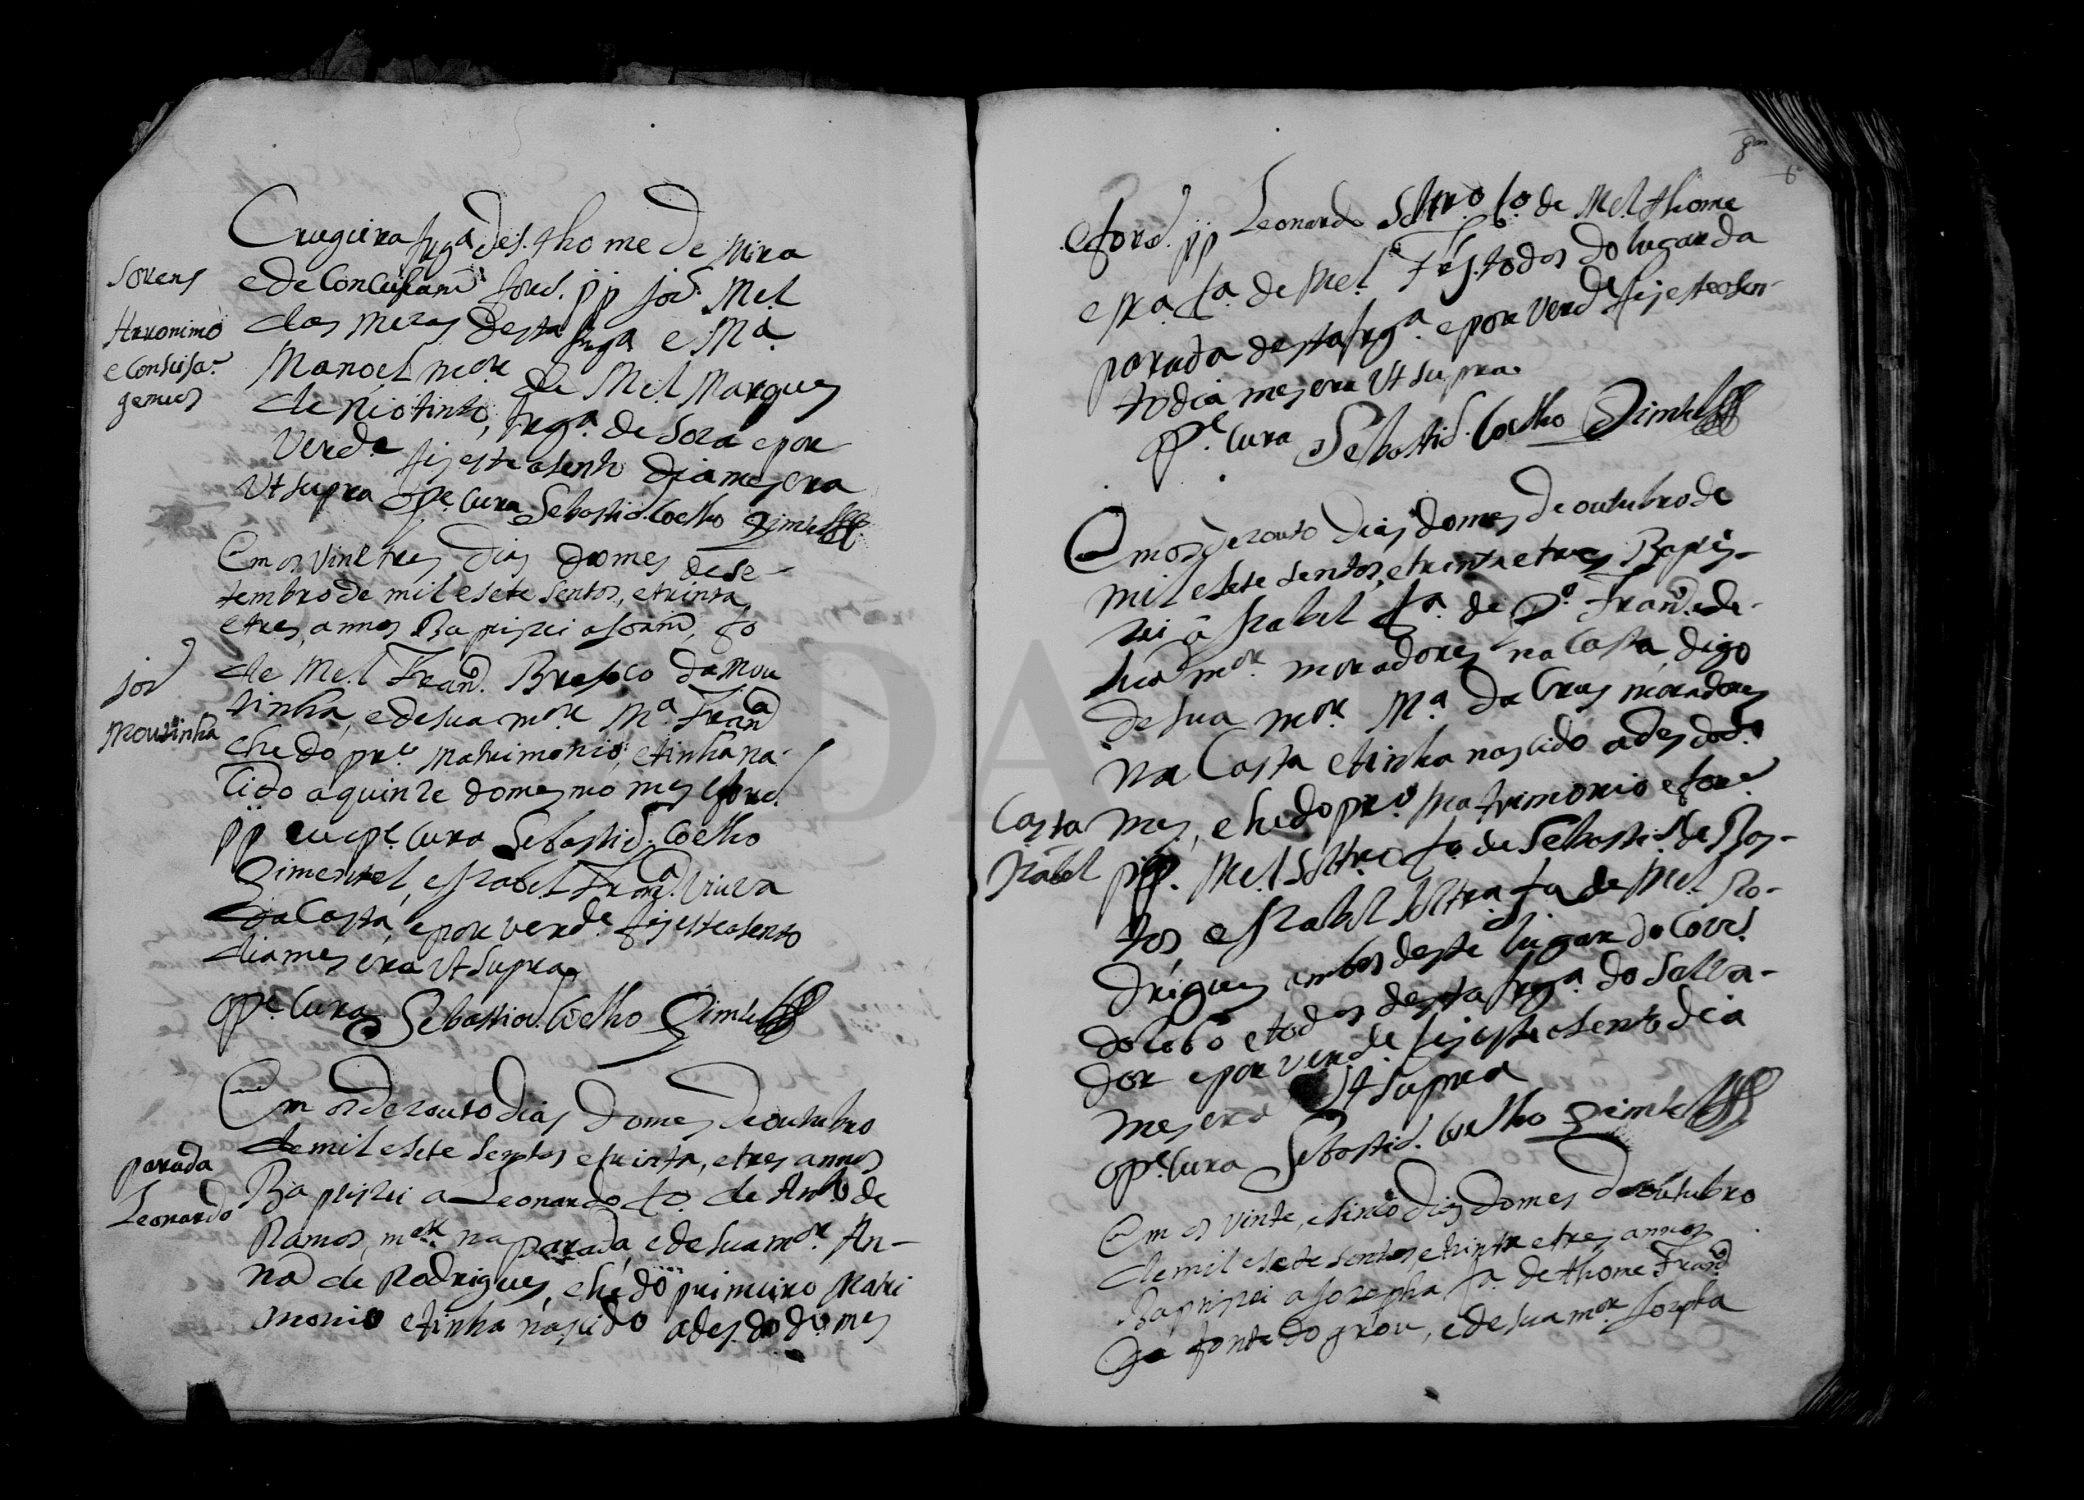 Crugueira frg.ª de S. thome de Mira
e de Conceisam forã pp Joã Mel
das Meras desta frga e Mª
Sorens
Hirronimo
e Conseisaõ
gemeos
Manoel mer de Mel Marques
de Riotinto, frgª. de Soza e por
verdᵉ fis este asento dia mes era
Vt supra O Pᵉ Cura Sebastiã Coelho Pimtel
Em os vinte tres dias do mes de se-
tembro de mil e sete sentos, e trinta,
e tres, annos Baptizei a Joam, fo
Joã
Moutinha
de Mel Franᶜᵒ. Bresoco da Mou
tinha, e de sua mer Mª. Franᶜª
e he do prº matrimonio, e tinha na-
cido a quinze do mesmo mes e forã
pp eu o Pᵉ Cura Sebastiã Coelho
Pimentel, e Izabel Franᶜª viuva
da Costa, e por verdᵉ fis este asento
dia mes era Vt supra
O Pᵉ Cura Sebastiaõ Coelho Pimtel
Em os dezouto dias do mes de outubro
de mil e sete sentos e trinta, e tres annos
Parada
Leonardo
Baptizei a Leonardo fo. de Antº de
Ramos, mer na parada, e de sua mer. An-
na de Rodrigues, e he do primeiro Matri
monio e tinha nascido a des do do mes
e forã. pp Leonardo Soltrº fo. de Mel thome
e fra. fª. de Mel Frz. todos do lugar da
parada desta frgª. e por verdᵉ fis este asen-
to dia mes era Vt supra.
O Pᵉ. Cura Sebastiã. Coelho Pimtel
Em os dezouto dias do mes de outubro de
mil e sete sentos, e trinta e tres Baptis-
zei a Izabel fª. de Pº. Franᶜᵒ. e de
sua mer. moradores na Costa, digo
de sua mer. Mª. da Crus moradores
na Costa e tinha nascido a des do dº
Costa
Izabel
mes, e he do prº matrimonio e forã
pp. Mel Soltrº fo. de Sebastiã. de Bas-
tos, e Izabel Soltra fª de Mel Ro-
drigues ambos deste lugar do Covã
do lobo e todos desta frgª. do Salva-
dor e por verdᵉ. fis este asento dia
mes era Vt supra
O Pᵉ Cura Sebastiã. Coelho Pimtel
Em os vinte, e sinco dias do mes de outubro
de mil e sete sentos e trinta e tres annos
Baptizei a Jozepha fª. de thome Franᶜᵒ
da fonte do grou, e de sua mer Jozepha